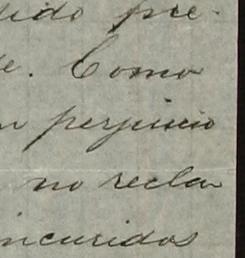 dido pre-
e. Como
n perjuicio
no recla
incuridos